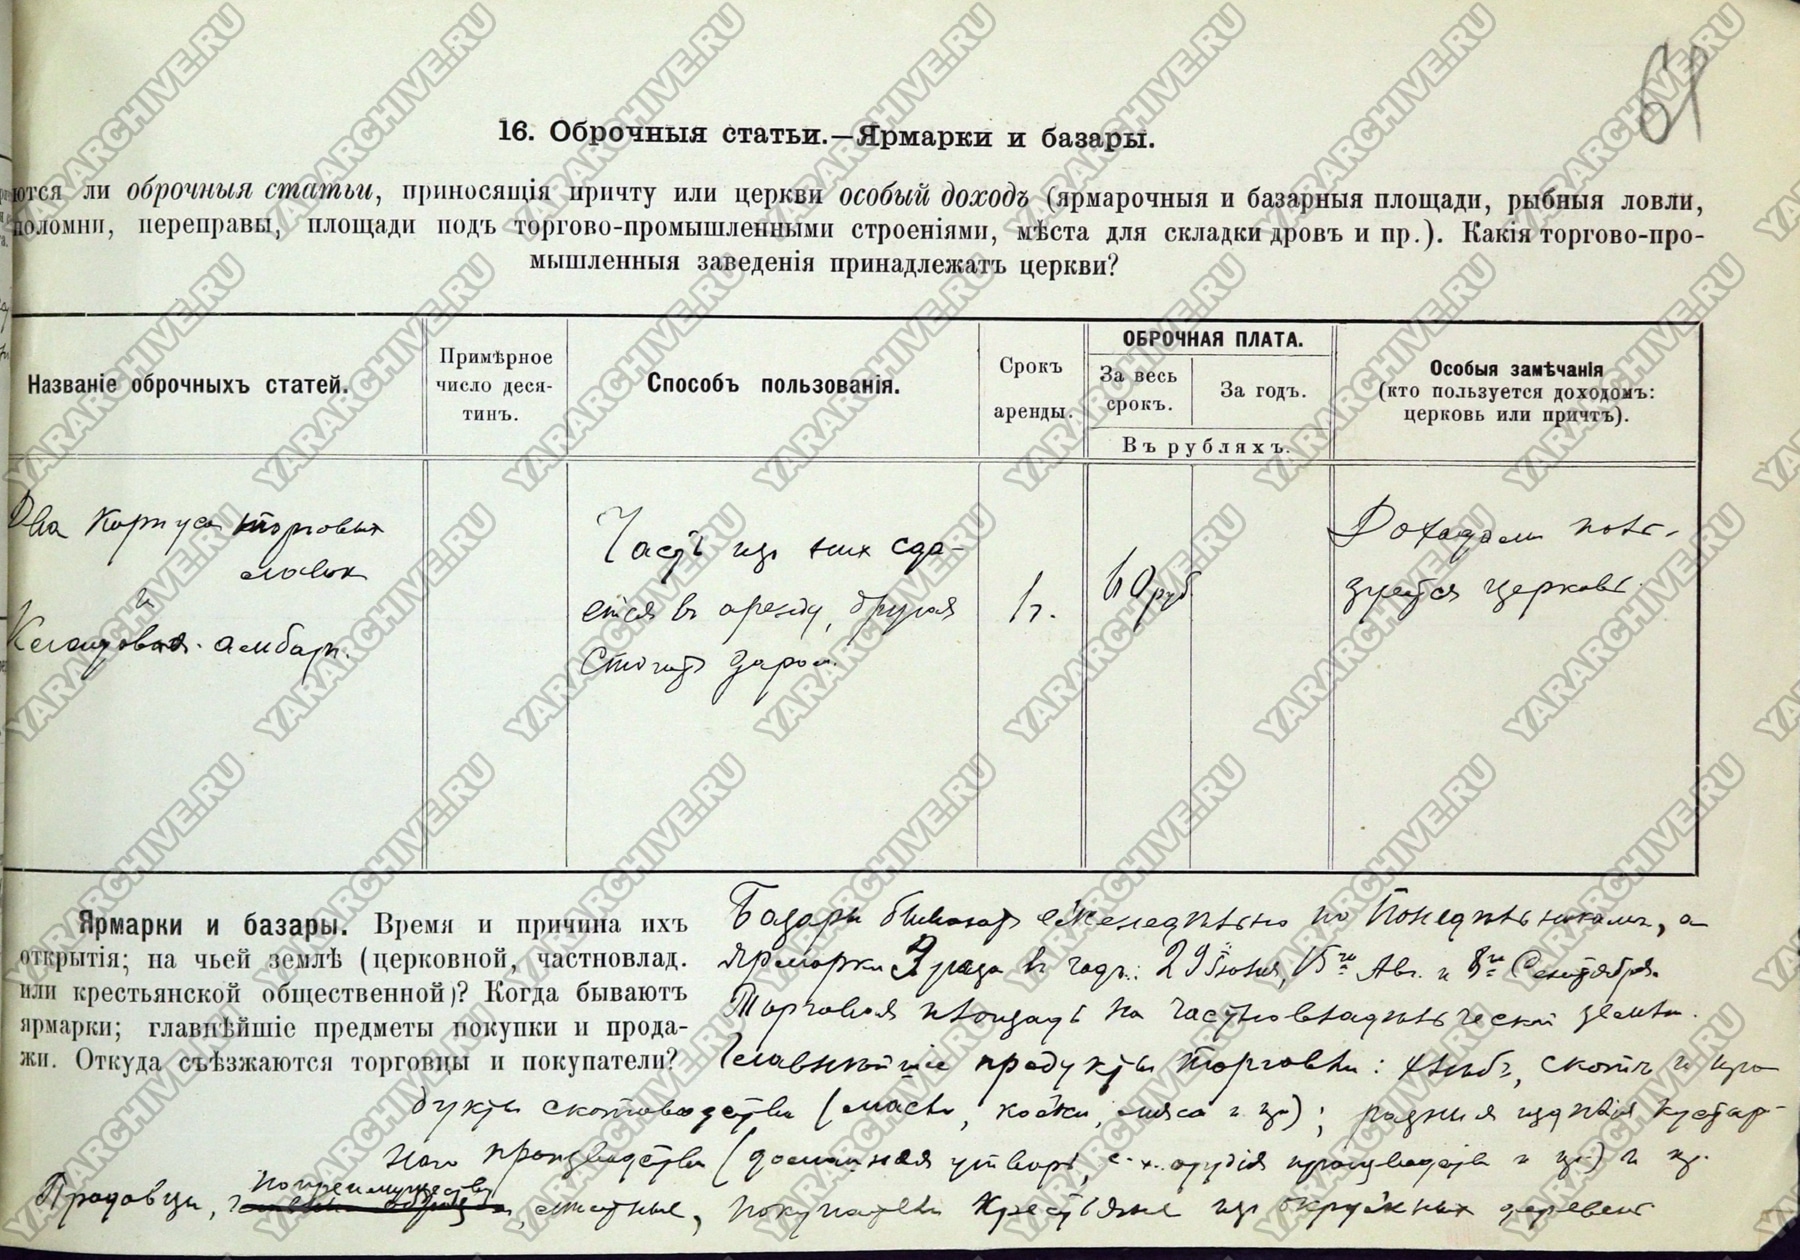 61
16. Оброчныя статьи.—Ярмарки и базары.
ются ли оброчныя статьи, приносящія причту или церкви особый доходъ (ярмарочныя и базарныя площади, рыбныя ловли,
оломни, переправы, площади подъ торгово-промышленными строеніями, мѣста для складки дровъ и пр.). Какія торгово-про-
мышленныя заведенія принадлежатъ церкви?
Названіе оброчныхъ статей.
Примѣрное число деся-тинъ.
Способъ пользованія.
Срокъ аренды.
ОБРОЧНАЯ ПЛАТА.
За весь срокъ.
За годъ.
Въ рубляхъ.
Особыя замѣчанія
(кто пользуется доходомъ:
церковь или причтъ).
Два корпуса торговых
лавок
и
Кладовая амбаръ.
Часть из них сда-
ется въ аренду, другая
стоитъ даром.
1 г.
60 руб
Доходами поль-
зуется церковь.
Ярмарки и базары. Время и причина ихъ
открытія; на чьей землѣ (церковной, частновлад.
или крестьянской общественной)? Когда бываютъ
ярмарки; главнѣйшіе предметы покупки и прода-
жи. Откуда съѣзжаются торговцы и покупатели?
Базары бываютъ еженедѣльно по Понедѣльникамъ, а
ярмарки 3 раза въ годъ: 29 Іюня, 15го Авг. и 8го Сентября.
Торговая площадь на частновладѣльческой земли.
Главнѣйшіе продукты торговли: хлѣбъ, скотъ и про
дукты скотоводства (масло, кожи, мясо и пр); разныя издѣлія кустар-
наго производства (домашняя утварь, с.-х. орудія производства и пр) и пр.
Продавцы, попреимуществу, мѣстные, покупатели крестьяне изъ окружныхъ деревень